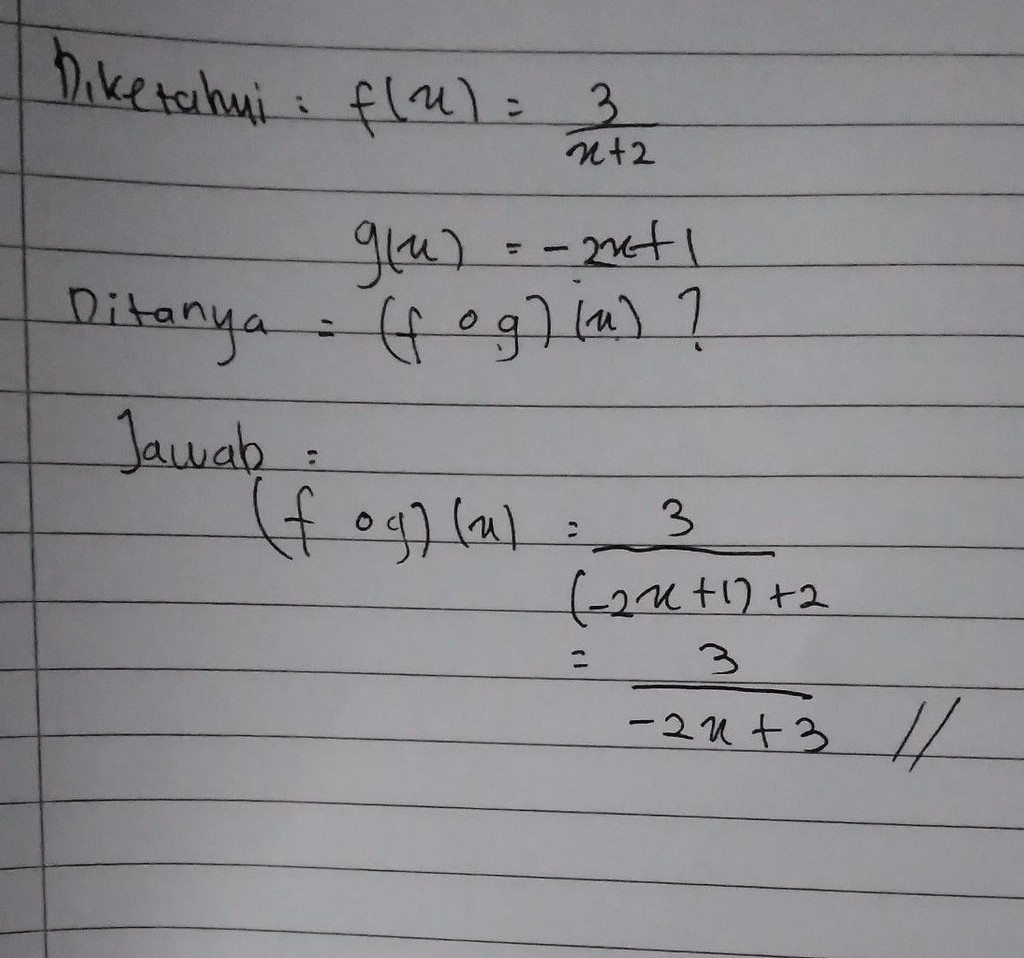 Diketahui : f(x) = 3
x+2
g(x) = -2x+1
Ditanya = (f o g) (x) ?
Jawab =
(f o g) (x) = 3
(-2x+1) +2
= 3
-2x + 3 //